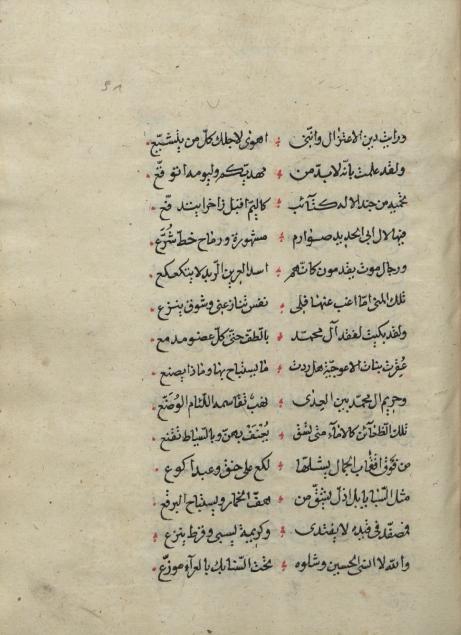 ورايت دين الاعتزال وانني اهوى لاجلك كل من يتشيع
ولقد علمت بانه لابد من مهديكم وليومه اتوقع
تحميه من جند الاله كتائب كاليم اقبل زاخرا يتدفع
فيها لال ابي الحديد صوارم مشهورة ورماح خط شرع
ورجال موت يقدمون كانهم اسد العرين الربد لا يتكعكع
تلك المنى اما اغب عنها فلي نفس تنازعني وشوق ينزع
ولقد بكيت لفقد آل محمد بالطف حتى كل عضو مدمع
عقرت بنات الاعوجية هل درت ما يستباح بها وماذا يصنع
وحريم ال محمد بين العدى نهب تقاسمه اللئام الوضع
تلك الظعائن كالاماء متى تسق يعنف بهن وبالسياط تقنع
من فوق اقتاب الجمال يشلها لكع على حنق وعبد اكوع
مثل السبايا بل اذل يشق من هن الخمار ويستباح البرقع
فمصفد في قيده لا يفتدى وكريمة تسبى وقرط ينزع
والله لا انسى الحسين وشلوه تحت السنابك بالعراء موزع